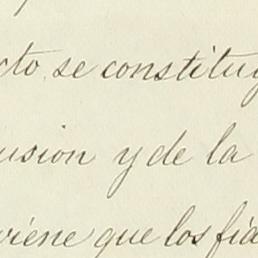 cto, se constituy
usion y de la
viene que los fia